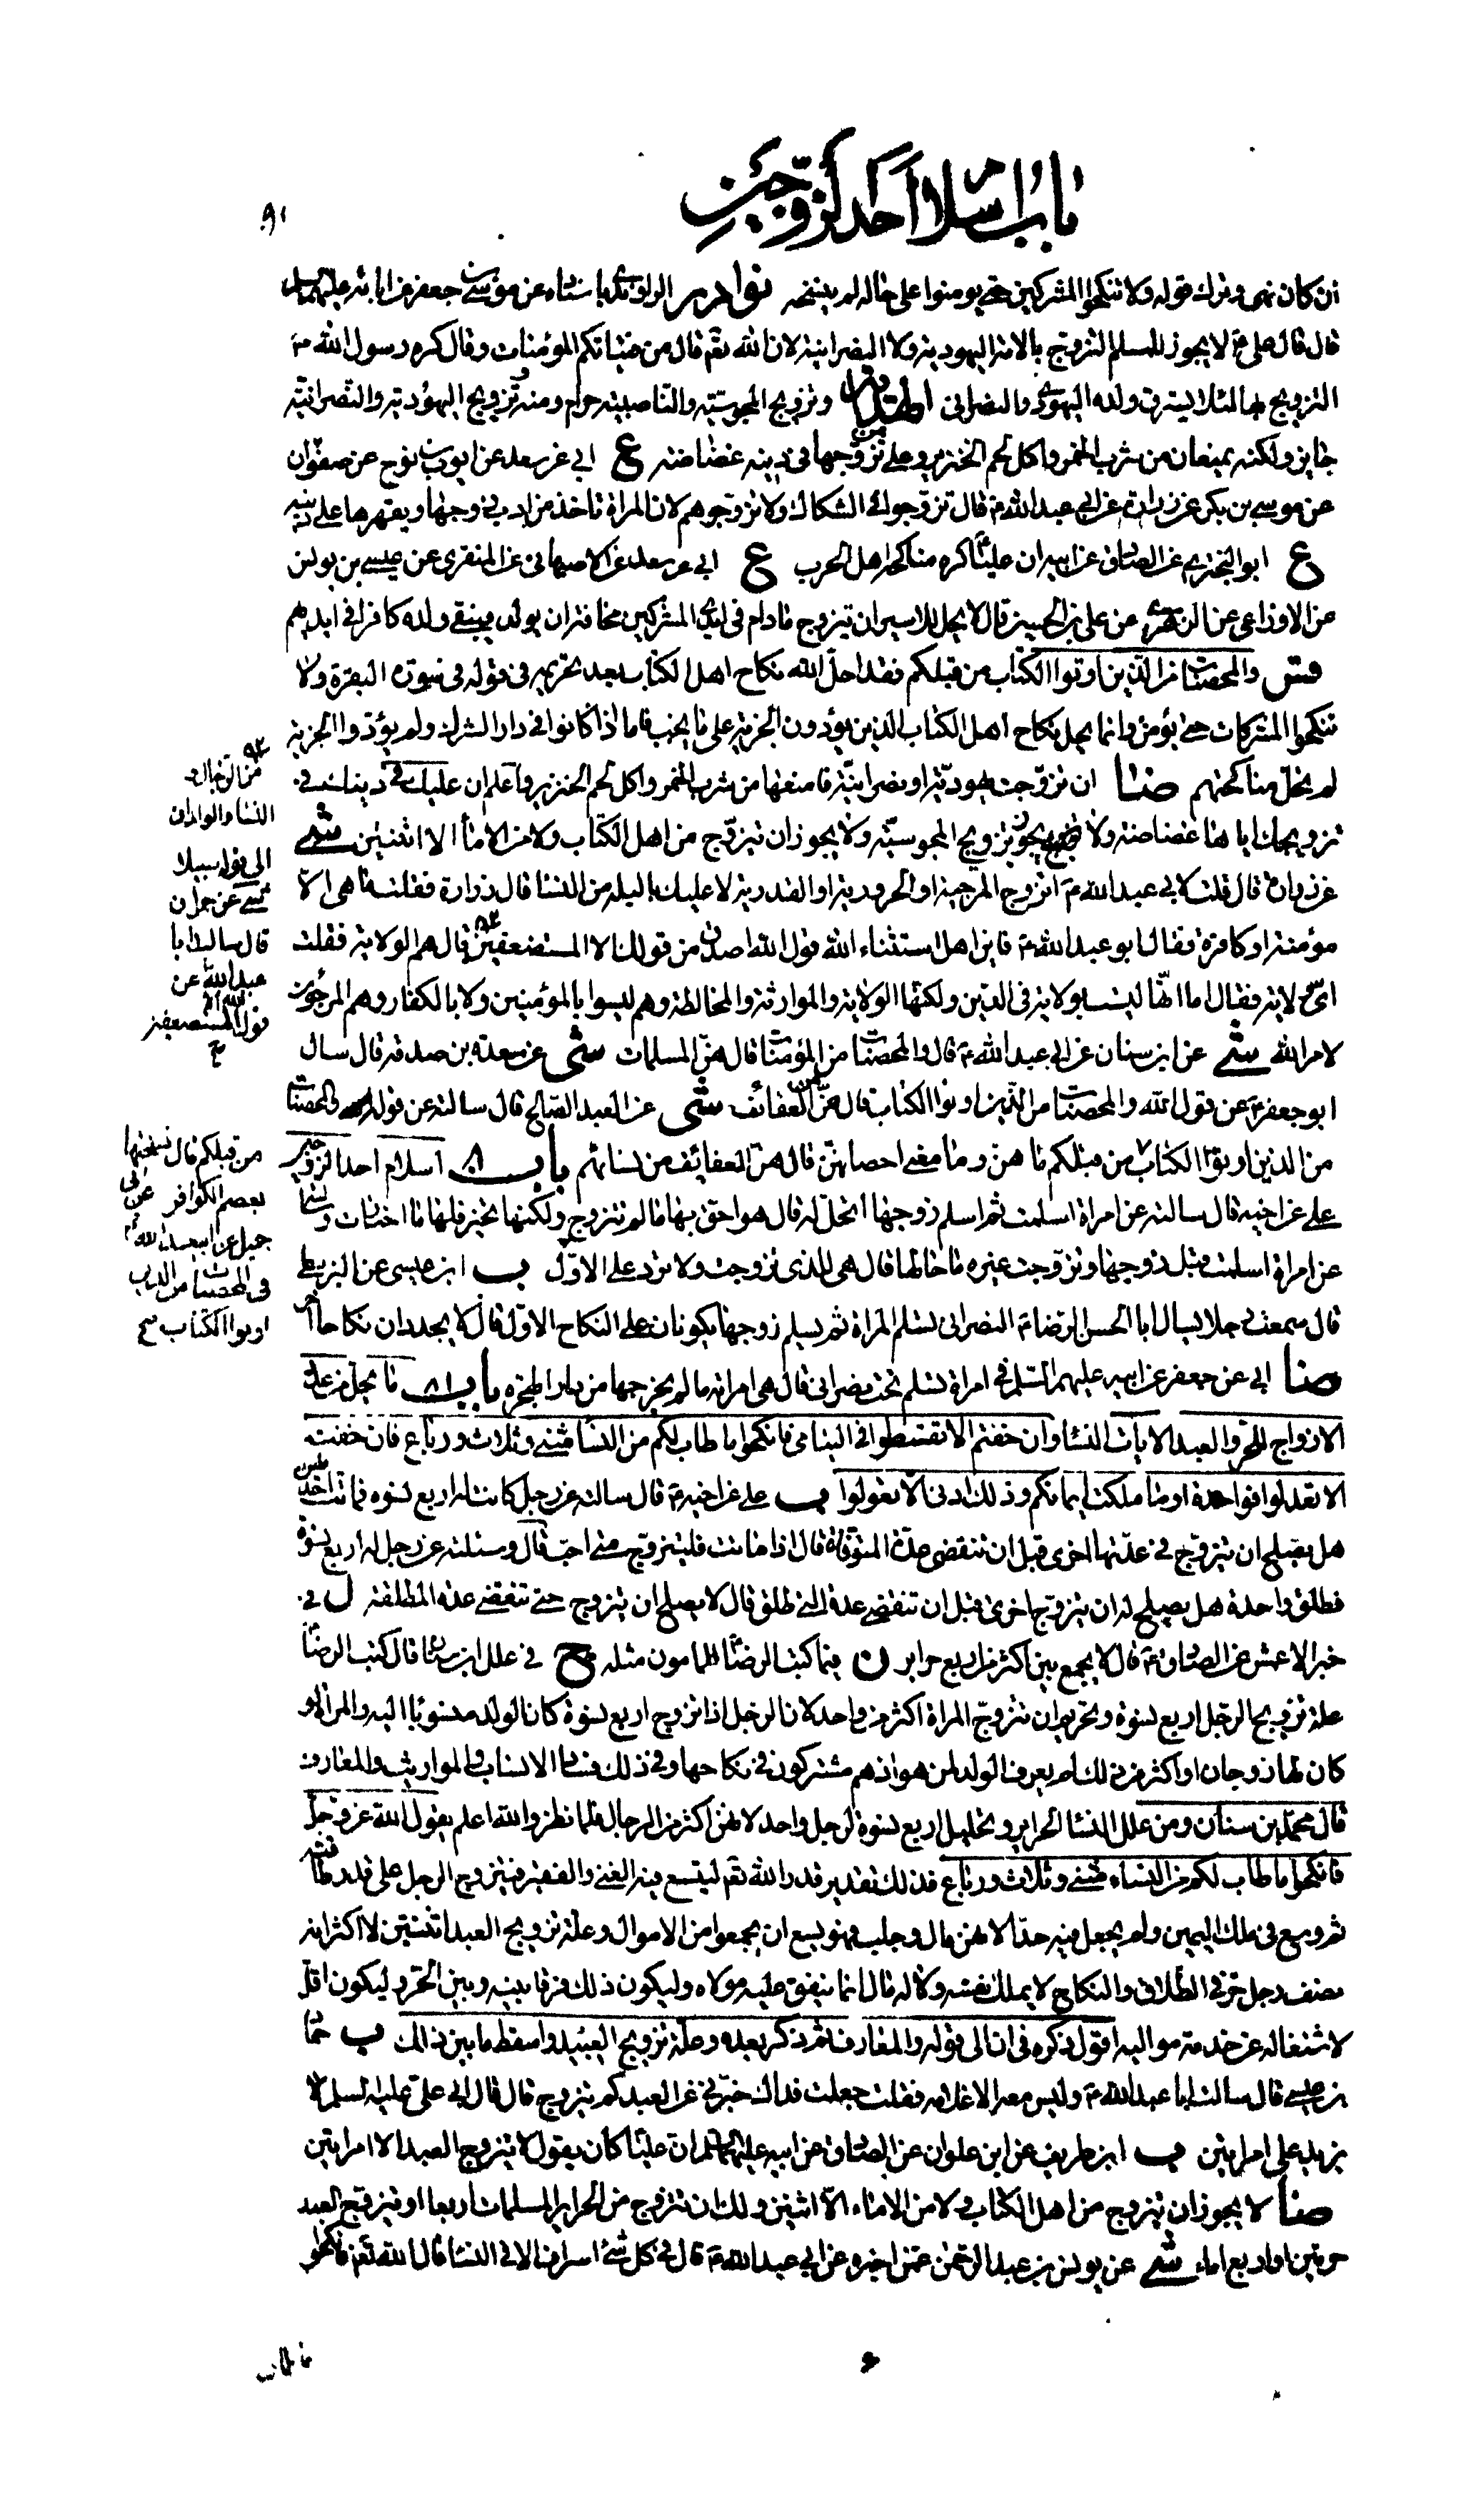 باب اسلام احد الزوجين
٩١
ان كان نهى وترك قوله ولا تنكحوا المشركين حتى يومنوا على حاله لم ينسخه نوادر الراوندي باسناده عن موسى بن جعفر عن ابائه عليهم السلم
قال قال علي ع لا يجوز للمسلم التزوج بالامة اليهودية ولا النصرانية لان الله تعم قال من فتياتكم المؤمنات وقال كره رسول الله ص
التزويج بها لئلا يسترق ولده اليهودي والنصراني الهداية وتزويج المجوسية والناصبية حرام ومنه وتزويج اليهودية والنصرانية
جايز ولكنه يمنعان من شرب الخمر واكل لحم الخنزير وعلى من تزوجها في دينه غضاضة ع ابي عن سعد عن ايوب بن نوح عن صفوان
عن موسى بن بكر عن زرارة عن ابي عبد الله ع قال تزوجوا في الشكاك ولا تزوجوهم لان المراة تاخذ من ادب زوجها ويقهرها على دينه
ع ابو البختري عن الصادق عن ابيه ان عليا كره مناكحة اهل الحرب ع ابي عن سعد عن الاصبهاني عن المنقري عن عيسى بن يونس
عن الاوزاعي عن الزهري عن علي بن الحسين قال لا يحل للاسير ان يتزوج ما دام في ايدي المشركين مخافة ان يولد له فيبقى ولده كافرا في ايديهم
فس والمحصنات من الذين اوتوا الكتاب من قبلكم فقد احل الله نكاح اهل الكتاب بعد تحريمه في قوله في سورة البقرة ولا
تنكحوا المشركات حتى يؤمن وانما يحل نكاح اهل الكتاب الذين يؤدون الجزية على ما يجب فاما اذا كانوا في دار الشرك ولم يؤدوا الجزية
لم يحل مناكحتهم ضا ان تزوجت يهودية او نصرانية فامنعها من شرب الخمر واكل لحم الخنزير واعلم ان عليك في دينك في
تزويجك اياها غضاضة ولا يجوز تزويج المجوسية ولا يجوز ان تتزوج من اهل الكتاب ولا من الاماء الا اثنتين شي
عن زرارة قال قلت لابي عبد الله ع اتزوج المرجئة او الحرورية او القدرية لا عليك بالبله من النساء قال زرارة فقلت ما هي الا
مؤمنة او كافرة فقال ابو عبد الله ع فاين اهل استثناء الله قول الله اصدق من قولك الا المستضعفين قال هم الولاية فقلت
اي ولاية فقال اما انها ليست بولاية في الدين ولكنها الولاية والموارثة والمخالطة وهم ليسوا بالمؤمنين ولا بالكفار وهم المرجون
لامر الله شي عن ابن سنان عن ابي عبد الله ع قال والمحصنات من المؤمنات قال هن المسلمات شي عن مسعدة بن صدقة قال سال
ابو جعفر ع عن قول الله والمحصنات من الذين اوتوا الكتاب قال هن العفائف شي عن العبد الصالح قال سالته عن قوله والمحصنات
من الذين اوتوا الكتاب من قبلكم ما هن وما معنى احصانهن قال هن العفائف من نسائهم باب اسلام احد الزوجين
علي عن اخيه قال سالته عن امراة اسلمت ثم اسلم زوجها اتحل له قال هو احق بها ما لم تتزوج ولكنها تخير فلها ما اختارت
عن امراة اسلمت قبل زوجها وتزوجت غيره ما حالها قال هي للذي تزوجت ولا ترد على الاول ب ابن عيسى عن البزنطي
قال سمعت رجلا يسال ابا الحسن الرضا ع النصراني تسلم المراة ثم يسلم زوجها يكونان على النكاح الاول قال لا يجددان نكاحا
ضا ابي عن جعفر عن ابيه عليهما السلم في امراة تسلم تحت نصراني قال هي امراته ما لم يخرجها من دار الهجرة باب ما يحل من عدد
الازواج للحر والعبد الايات النساء وان خفتم الا تقسطوا في اليتامى فانكحوا ما طاب لكم من النساء مثنى وثلاث ورباع فان خفتم
الا تعدلوا فواحدة او ما ملكت ايمانكم وذلك ادنى الا تعولوا ب علي عن اخيه ع قال سالته عن رجل كانت له اربع نسوة فماتت احديهن
هل يصلح ان يتزوج في عدتها اخرى قبل ان تنقضي عدة المتوفاة قال اذا ماتت فليتزوج متى احب قال وسئلته عن رجل له اربع نسوة
فطلق واحدة هل يصلح له ان يتزوج اخرى قبل ان تنقضي عدة التي طلق قال لا يصلح ان يتزوج حتى تنقضي عدة المطلقة ل في
خبر الاعمش عن الصادق ع قال لا يجمع بين اكثر من اربع حراير ن فيما كتب الرضا للمامون مثله ع في علل ابن سنان قال كتب الرضا
علة تزويج الرجل اربع نسوة وتحريم ان تتزوج المراة اكثر من واحد لان الرجل اذا تزوج اربع نسوة كان الولد منسوبا اليه والمراة لو
كان لها زوجان او اكثر من ذلك لم يعرف الولد لمن هو اذ هم مشتركون في نكاحها وفي ذلك فساد الانساب والمواريث والمعارف
قال محمد بن سنان ومن علل النساء الحراير وتحليل اربع نسوة لرجل واحد لانهن اكثر من الرجال فلما نظر والله اعلم يقول الله عز وجل
فانكحوا ما طاب لكم من النساء مثنى وثلاث ورباع فذلك تقدير قدر الله تعم ليتسع فيه الغني والفقير فيتزوج الرجل على قدر طاقته
ثم وسع في ملك اليمين ولم يجعل فيه حدا لانهن مال وجلب فهو يسع ان يجمعوا من الاموال وعلة تزويج العبد اثنتين لا اكثر انه
نصف رجل حر في الطلاق والنكاح لا يملك نفسه ولا له مال انما ينفق عليه مولاه وليكون ذلك فرقا بينه وبين الحر وليكون اقل
لاشتغاله عن خدمة مواليه اقول ذكره في ن الى قوله والمعارف ثم ذكر بعده وعلة تزويج العبيد واسقط ما بين ذلك ب حماد
بن عيسى قال سالت ابا عبد الله ع وليس معه الا غلامه فقلت جعلت فداك خبرني عن العبد كم يتزوج قال قال ابي علي عليه السلم لا
يزيد على امراتين ب ابن طريف عن ابن علوان عن الصادق عن ابيه عليهما السلم ان عليا كان يقول لا يتزوج العبد الا امراتين
ضا لا يجوز ان تتزوج من اهل الكتاب ولا من الاماء الا اثنتين ولك ان تتزوج من الحراير المسلمات اربعا او يتزوج العبد
حرتين او اربع اماء شي عن يونس بن عبد الرحمن عمن اخبره عن ابي عبد الله ع قال في كل شئ اسراف الا في النساء قال الله تعم فانكحوا
ما طاب
من الرجال و
النساء والولدان
الى قوله سبيلا
شي عن حمران
قال سالت ابا
عبد الله عن
قول الله الا المستضعفين
من قبلكم قال نسختها
بعصم الكوافر عن ابي
جميل عن ابي عبد الله ع
في المحصنات من الذين
اوتوا الكتاب صح